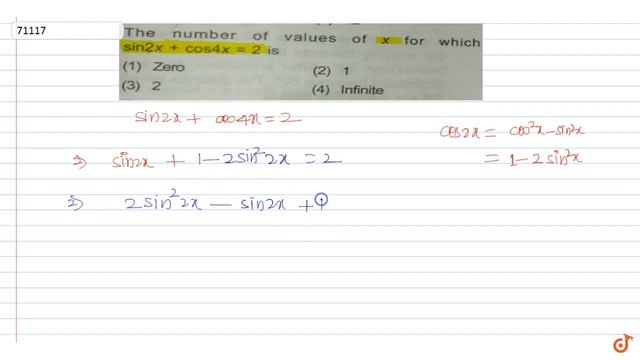 71117
The number of values of x for which
sin2x + cos4x = 2 is
(1) Zero
(2) 1
(3) 2
(4) Infinite
sin2x + cos4x = 2
⇒ sin2x + 1 - 2sin²2x = 2
⇒ 2sin²2x - sin2x + 1
cos2x = cos²x - sin²x
= 1 - 2sin²x